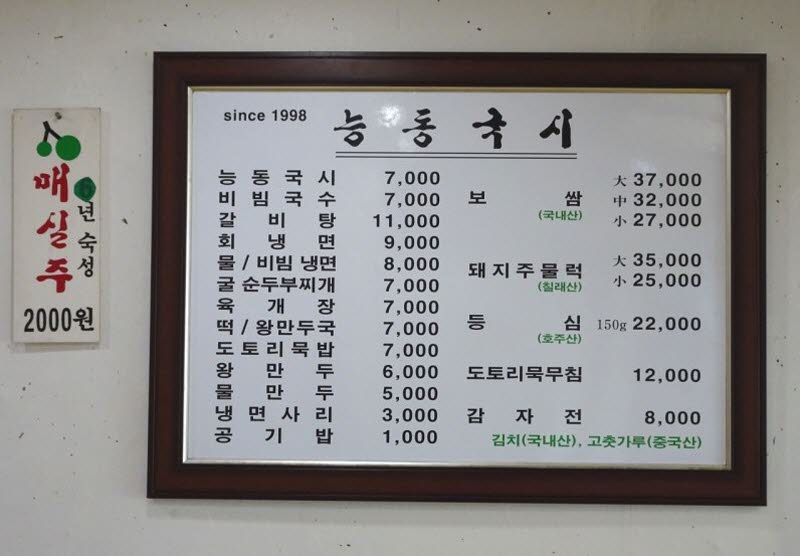 매실주
6년 숙성
2000원
since 1998
능동국시
능동국시 7,000
비빔국수 7,000
갈비탕 11,000
회냉면 9,000
물/비빔냉면 8,000
굴순두부찌개 7,000
육개장 7,000
떡/왕만두국 7,000
도토리묵밥 7,000
왕만두 6,000
물만두 5,000
냉면사리 3,000
공기밥 1,000
보쌈 大 37,000
中 32,000
(국내산) 小 27,000
大 35,000
돼지주물럭
(칠래산) 小 25,000
등심 150g 22,000
(호주산)
도토리묵무침 12,000
감자전 8,000
김치(국내산), 고춧가루(중국산)